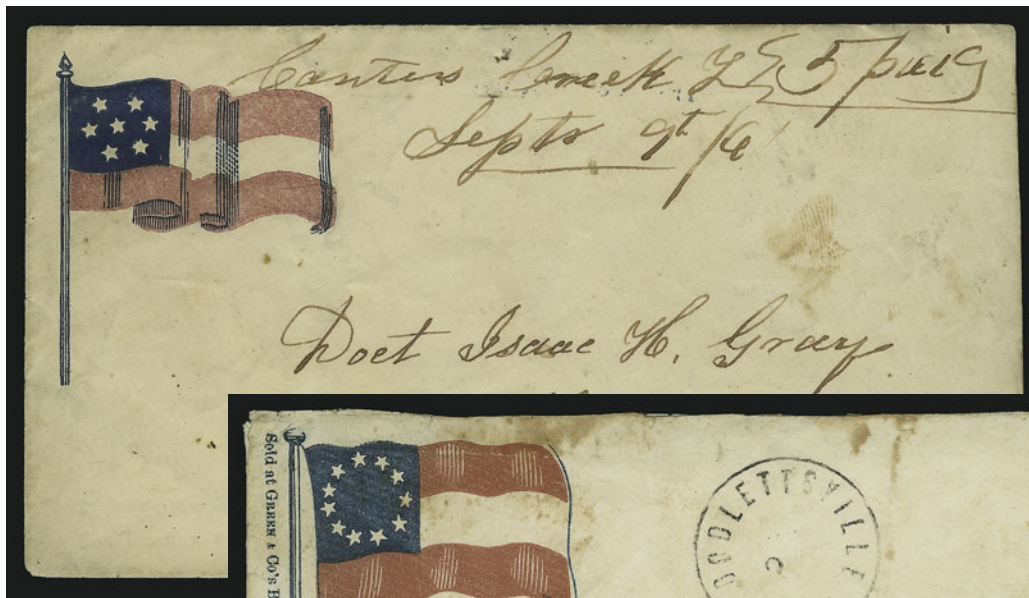 Canters Creek T 5 paid
Septr 9th /61
Doct Isaac H. Gray
Sold at GREEN & Co's B
OODLETTSVILLE